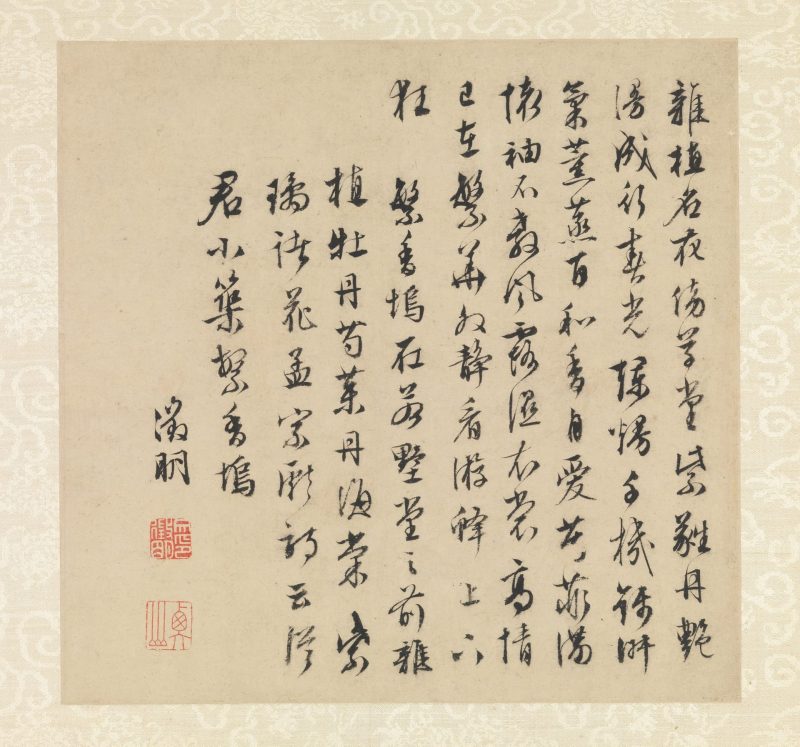 雜植名花傍草堂紫蕤丹艷
漫成行春光爛熳千機錦淅
氣薰蒸百和香自愛芳菲滿
懷袖不教風露濕衣裳高情
已在繁華外靜看游蜂上下
狂 繁香塢在若墅堂之前雜
植牡丹芍藥丹海棠紫
璚諸花孟宗獻詩云從
君小築繁香塢
徵明